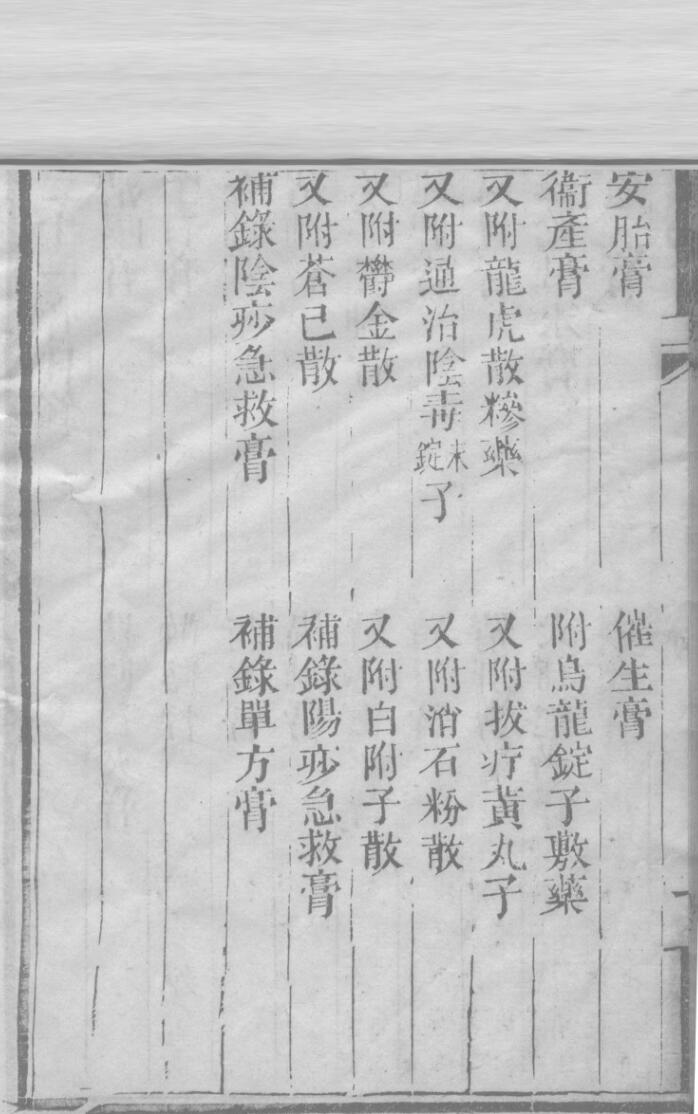 安胎膏　催生膏
衞產膏　附烏龍錠子敷藥
又附龍虎散糝藥　又附拔疔黃丸子
又附通治陰毒末錠子　又附消石粉散
又附欝金散　又附白附子散
又附蒼已散　補錄陽痧急救膏
補錄陰痧急救膏　補錄單方膏